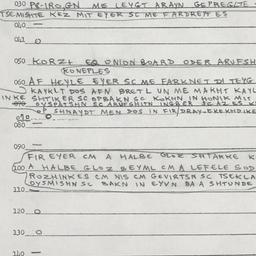 030 PE-IRO,GN ME LEYGT ARAYN GEPREGLTE
TSEMISHTE KEZ MIT EYER SC ME FARDREYT ES
040
041
050 KORZH EQ ONION BOARD ODER ARUFSH
KONEPLES
060 AF HEYLE EYER SC ME FARKNET DI TEYG
KAYKLT DOS AFN BRETL UN ME MAKHT KAYL
IN KE SHTIKER SC OPBAKN SC KOKHN IN HONIK MIT
OYSPATSHN SC ARUFSHITN INGBER SC AZ ES
SHNAYDT MEN DOS IN FIR/DRAY-EKEKHDIKE
080
090
FIR EYER CM A HALBE GLOZ SHTARKE K
100 A HALBE GLOZ BEYML CM A LEFELE SOD
ROZHINKES CM NIS CM GEVIRTSN SC TSEKLA
OYSMISHN SC BAKN IN EYVN BA A SHTUNDE
110
120
130
140